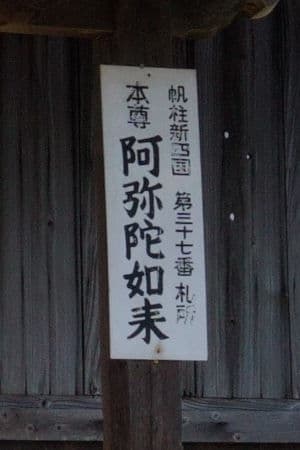 帆柱新四国 第三十七番 札所
本尊 阿弥陀如来